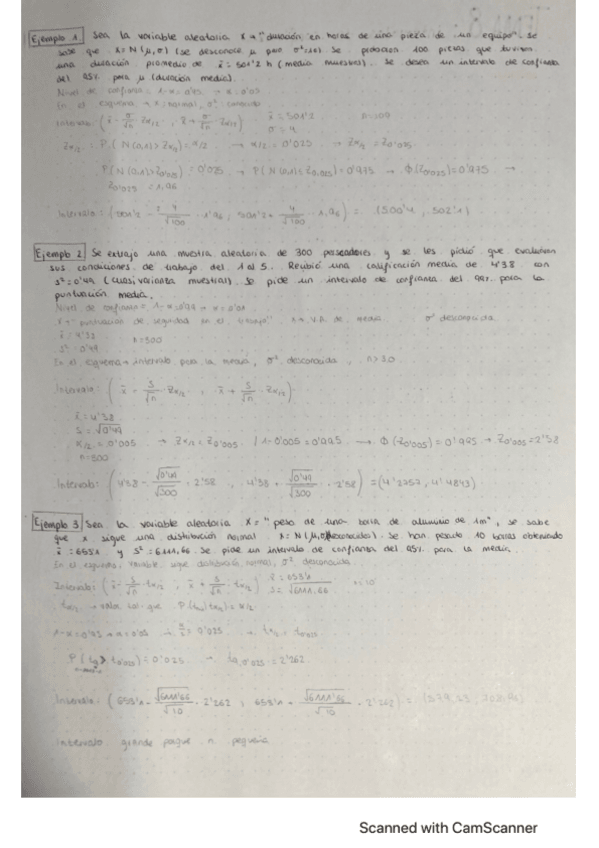 Ejemplo 1. Sea la variable aleatoria X → "duración en horas de una pieza de un equipo". Se
sabe que X = N(μ,σ) (se desconoce μ pero σ²=16). Se 100 piezas que tuvieron
una duración promedio de x̄ = 501'2 h (media muestral). Se desea un intervalo de confianza
del 95% para μ (duración media).
Nivel de confianza: 1-α = 0'95 → α = 0'05
En el esquema → X normal, σ² conocida
Intervalo: (x̄ - σ/√n · Zα/2 , x̄ + σ/√n · Zα/2) x̄ = 501'2
σ = 4
Zα/2 : P(N(0,1)>Zα/2) = α/2 → α/2 = 0'025 → Zα/2 = Z0'025
P(N(0,1)>Z0'025) = 0'025 → P(N(0,1)≤Z0,025) = 0'975 → Φ(Z0'025) = 0'975 →
Z0'025 = 1,96
Intervalo: (501'2 - 4/√100 · 1'96 ; 501'2 + 4/√100 · 1,96) = (500'4 , 502'1)
Ejemplo 2 Se extrajo una muestra aleatoria de 300 y se les pidió que evaluaran
sus condiciones de trabajo del 1 al 5. Recibió una calificación media de 4'38 con
s² = 0'49 (cuasivarianza muestral). Se pide un intervalo de confianza del 99% para la
puntuación media.
Nivel de confianza = 1-α = 0'99 → α = 0'01
X → "puntuación de seguridad en el trabajo" σ² desconocida
x̄ = 4'38
s² = 0'49 n=300
En el esquema → intervalo para la media, σ² desconocida, n>30
Intervalo: (x̄ - s/√n · Zα/2 , x̄ + s/√n · Zα/2)
x̄ = 4'38
s = √0'49
α/2 = 0'005 → Zα/2 = Z0'005 / 1-0'005 = 0'995 → Φ(Z0'005) = 0'995 → Z0'005 = 2'58
n=300
Intervalo: (4'38 - √0'49/√300 · 2'58 , 4'38 + √0'49/√300 · 2'58) = (4'2757, 4'4843)
Ejemplo 3 Sea la variable aleatoria X = "peso de una barra de aluminio de 1m", se sabe
que X sigue una distribución normal X = N(μ,σ)(desconocidos). Se han pesado 10 barras obteniendo
x̄ = 659'1 y s² = 6111,66. Se pide un intervalo de confianza del 95% para la media.
En el esquema, variable sigue distribución normal, σ² desconocida.
Intervalo: (x̄ - s/√n · tα/2 , x̄ + s/√n · tα/2) n = 10
s = √6111.66
tα/2 → valor tal que P(tn-1>tα/2) = α/2
1-α = 0'95 → α = 0'05 → α/2 = 0'025 → tα/2 = t0'025
P(t9 > t0'025) = 0'025 → t9,0'025 = 2'262
Intervalo: (659'1 - √6111'66/√10 · 2'262 , 659'1 + √6111'66/√10 · 2'262)
Intervalo grande porque n pequeña
Scanned with CamScanner